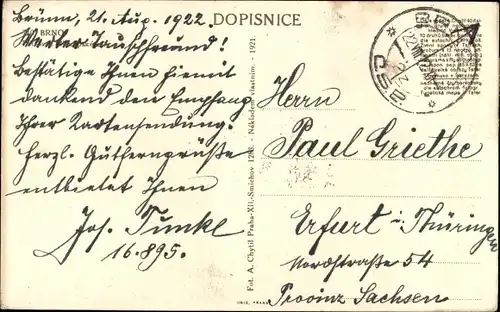 DOPISNICE
BRNO
Brünn, 21. Aug. 1922.
Werter Tauschfreund!
Bestätige Ihnen hiemit
dankend den Empfang
Ihrer Kartensendung.
Herzl. Gutferngrüße
entbietet Ihnen
Jos. Tunkl
16.895.
Fot. A. Chytil Praha-XII.-Smíchov 1298. - Nákladem vlastním. - 1921.
Herrn
Paul Griethe
Erfurt i. Thüringen
Nordstraße 54
Provinz Sachsen